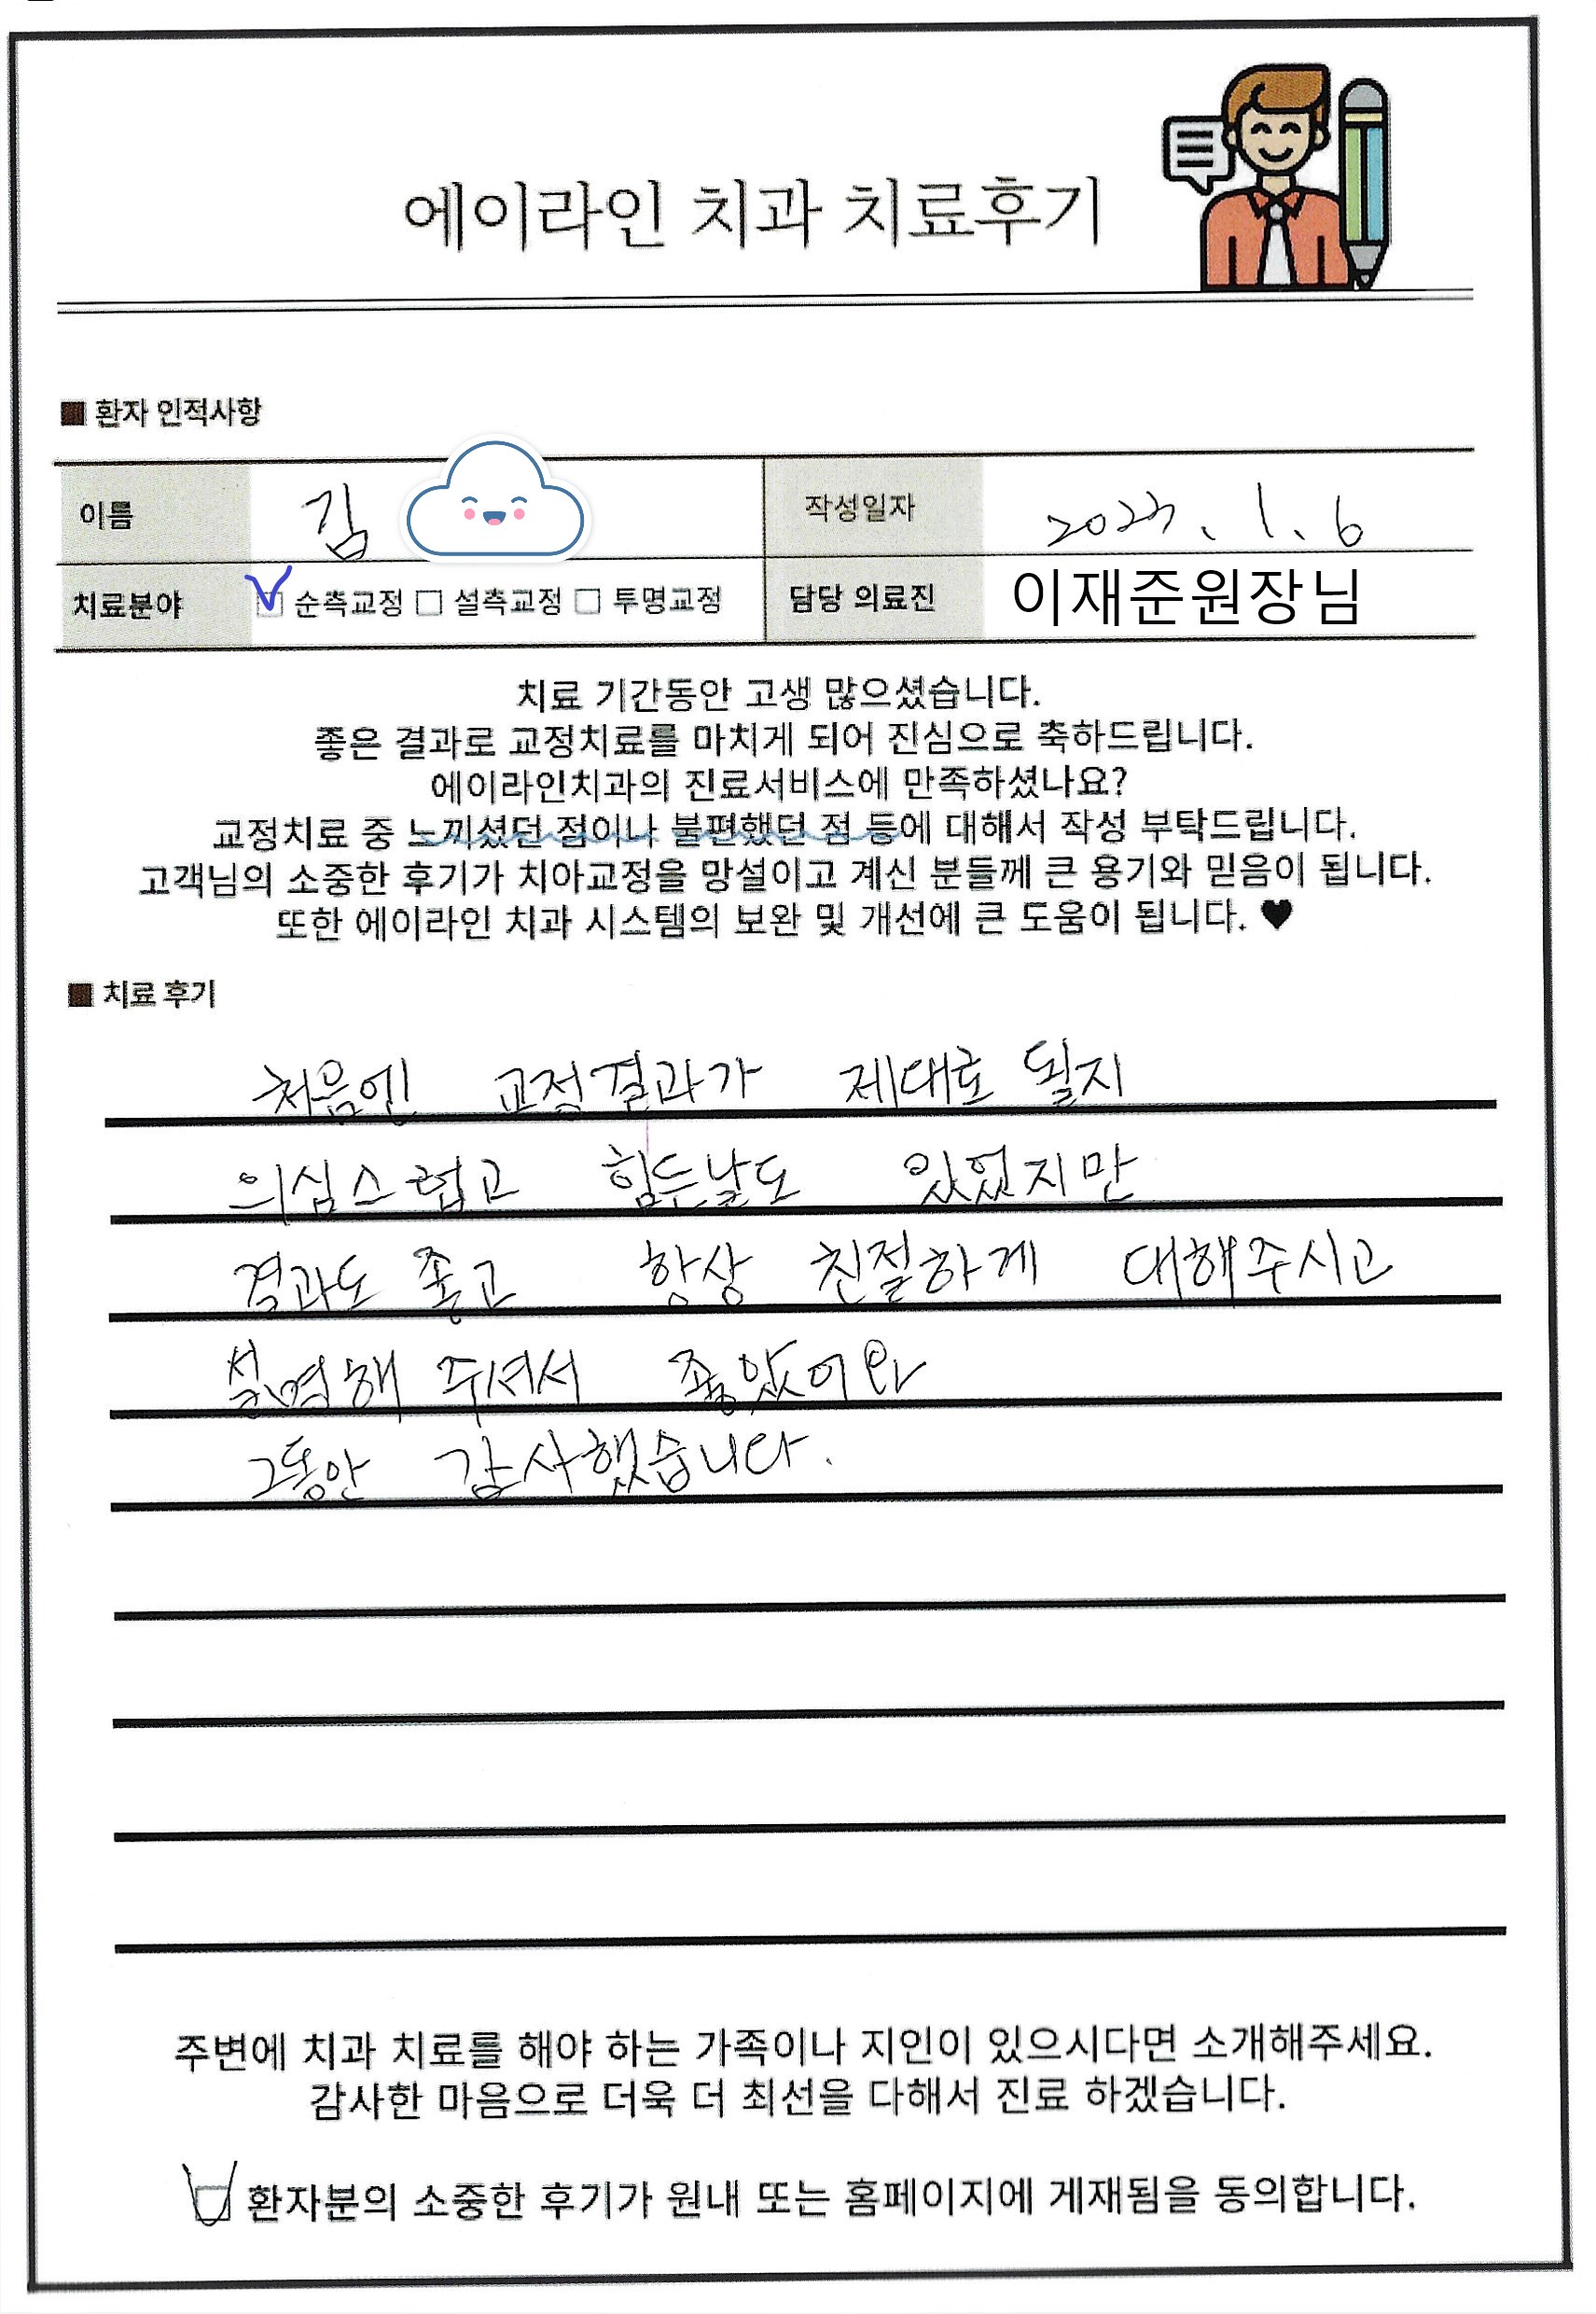 에이라인 치과 치료후기
■ 환자 인적사항
이름 김 작성일자 2023. 1. 6
치료분야 ☑ 순측교정 ☐ 설측교정 ☐ 투명교정 담당 의료진 이재준원장님
치료 기간동안 고생 많으셨습니다.
좋은 결과로 교정치료를 마치게 되어 진심으로 축하드립니다.
에이라인치과의 진료서비스에 만족하셨나요?
교정치료 중 느끼셨던 점이나 불편했던 점 등에 대해서 작성 부탁드립니다.
고객님의 소중한 후기가 치아교정을 망설이고 계신 분들께 큰 용기와 믿음이 됩니다.
또한 에이라인 치과 시스템의 보완 및 개선에 큰 도움이 됩니다. ♥
■ 치료 후기
처음엔 교정결과가 제대로 될지
의심스럽고 힘든날도 있었지만
결과도 좋고 항상 친절하게 대해주시고
설명해 주셔서 좋았어요
그동안 감사했습니다.
주변에 치과 치료를 해야 하는 가족이나 지인이 있으시다면 소개해주세요.
감사한 마음으로 더욱 더 최선을 다해서 진료 하겠습니다.
☑ 환자분의 소중한 후기가 원내 또는 홈페이지에 게재됨을 동의합니다.